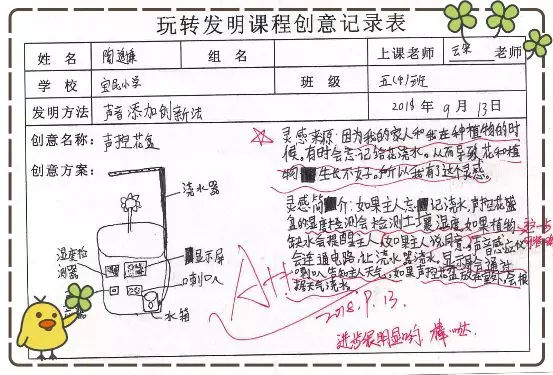 玩转发明课程创意记录表
姓名 陶 组名 上课老师 云 老师
学校 宝民小学 班级 五(4)班
发明方法 声音添加创新法 2018年9月13日
创意名称: 声控花盆
创意方案:
浇水器
湿度检测器
显示屏
喇叭口
水箱
灵感来源:因为我的家人和我在种植物的时
候,有时会忘记给花浇水。从而导致花和植
物生长不好。所以我有了这个灵感。
灵感简介:如果主人忘记浇水,声控花盆
的湿度检测会检测土壤湿度,如果植物
缺水会提醒主人,如果主人说,声音感应
会连通电路,让浇水器浇水。显示屏会通过
喇叭口告知主人天气。如果声控花盆放在室外,会根
据天气浇水。
A+!
2018.9.13
进步很明显哟 棒哒